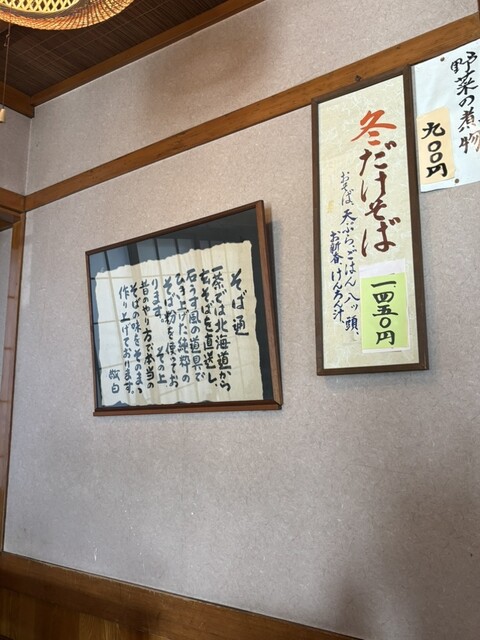 野菜の煮物
九〇〇円
冬だけそば
おそば、天ぷら、ごはん、八ッ頭、
お新香、けんちん汁、
一四五〇円
そば通
一茶では北海道から
玄そばを直送し、
石うす風の道具で
ひき上げた純粋の
そば粉を使ってお
ります。　その上
昔のやり方で本当の
そばの味をそのまゝ
作り上げております。
敬白